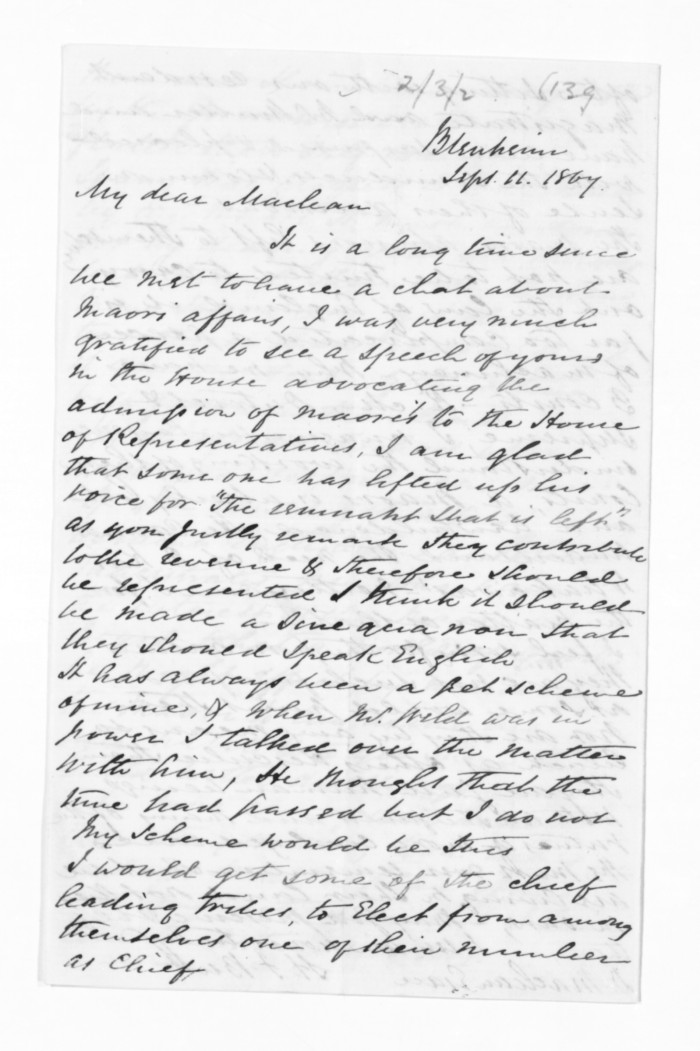 2/3/2 (139
Blenheim
Sept. 11. 1867.
My dear Maclean
It is a long time since
we met to have a chat about
Maori affairs, I was very much
gratified to see a speech of yours
in the House advocating the
admission of Maori's to the House
of Representatives, I am glad
that some one has lifted up his
voice for "The remnant that is left"
as you justly remark they contribute
to the revenue & therefore should
be represented I think it should
be made a Sine qua non that
they should speak English
It has always been a pet scheme
of mine, & when Mr. Weld was in
power I talked over the matter
with him, He thought that the
time had passed but I do not
My scheme would be this
I would get some of the chief
leading tribes, to Elect from among
themselves one of their number
as Chief